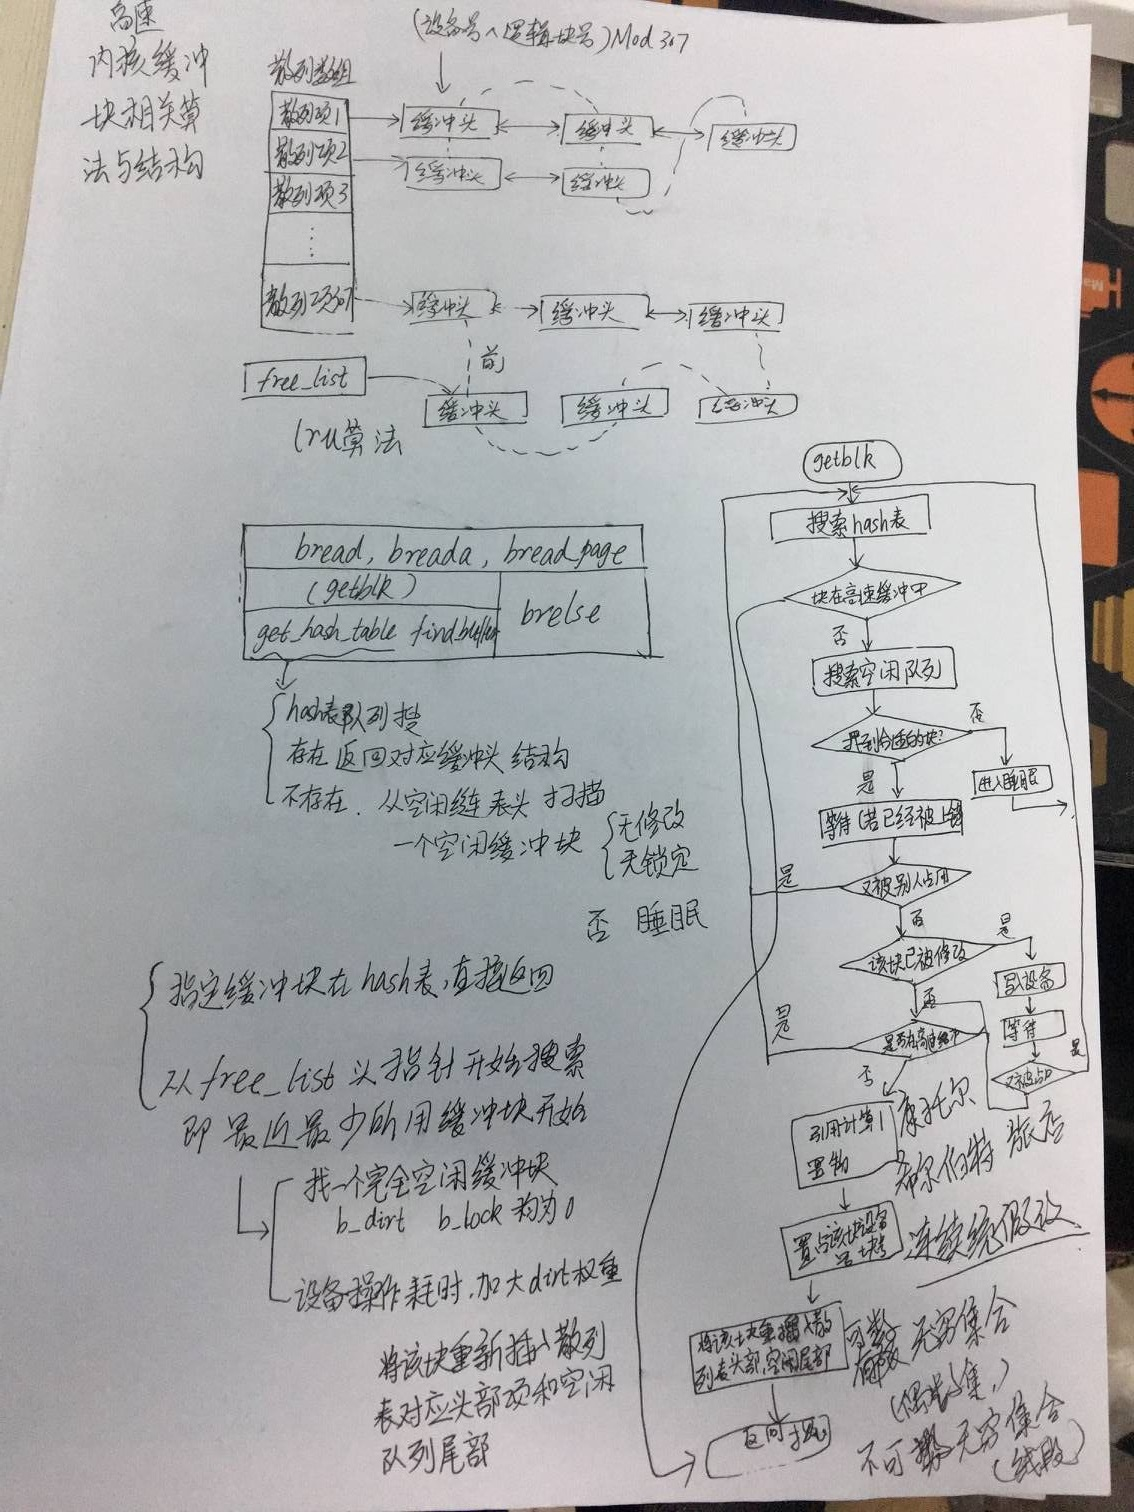 高速
内核缓冲
块相关算
法与结构
(设备号^逻辑块号)Mod 307
散列数组
散列项1
散列项2
散列项3
散列项307
缓冲头 缓冲头 缓冲头
缓冲头 缓冲头
缓冲头 缓冲头 缓冲头
前
free_list
缓冲头 缓冲头 缓冲头
lru算法
bread, breada, bread_page
(getblk)
get_hash_table find_buffer
brelse
hash表队列搜
存在返回对应缓冲头结构
不存在.从空闲链表头扫描
一个空闲缓冲块
无修改
无锁定
否 睡眠
指定缓冲块在hash表,直接返回
从free_list头指针开始搜索
即最近最少所用缓冲块开始
找一个完全空闲缓冲块
b_dirt b_lock均为0
设备操作耗时,加大dirt权重
将该块重新插入散列
表对应头部项和空闲
队列尾部
getblk
搜索hash表
块在高速缓冲中
否
搜索空闲队列
找到合适的块?
否
进入睡眠
是
等待(若已经被上锁
是
又被别人占用
否
该块已被修改
是
写设备
等待
又被占用
是
否
是否在高速缓冲
是
否
引用计算1
置物
置为该块设备
号 块号
将该块重插入散
列表头部,空闲尾部
返回
康托尔
希尔伯特 旅店
连续统假设
可数 无穷集合
(偶数集,)
不可数无穷集合
(线段)